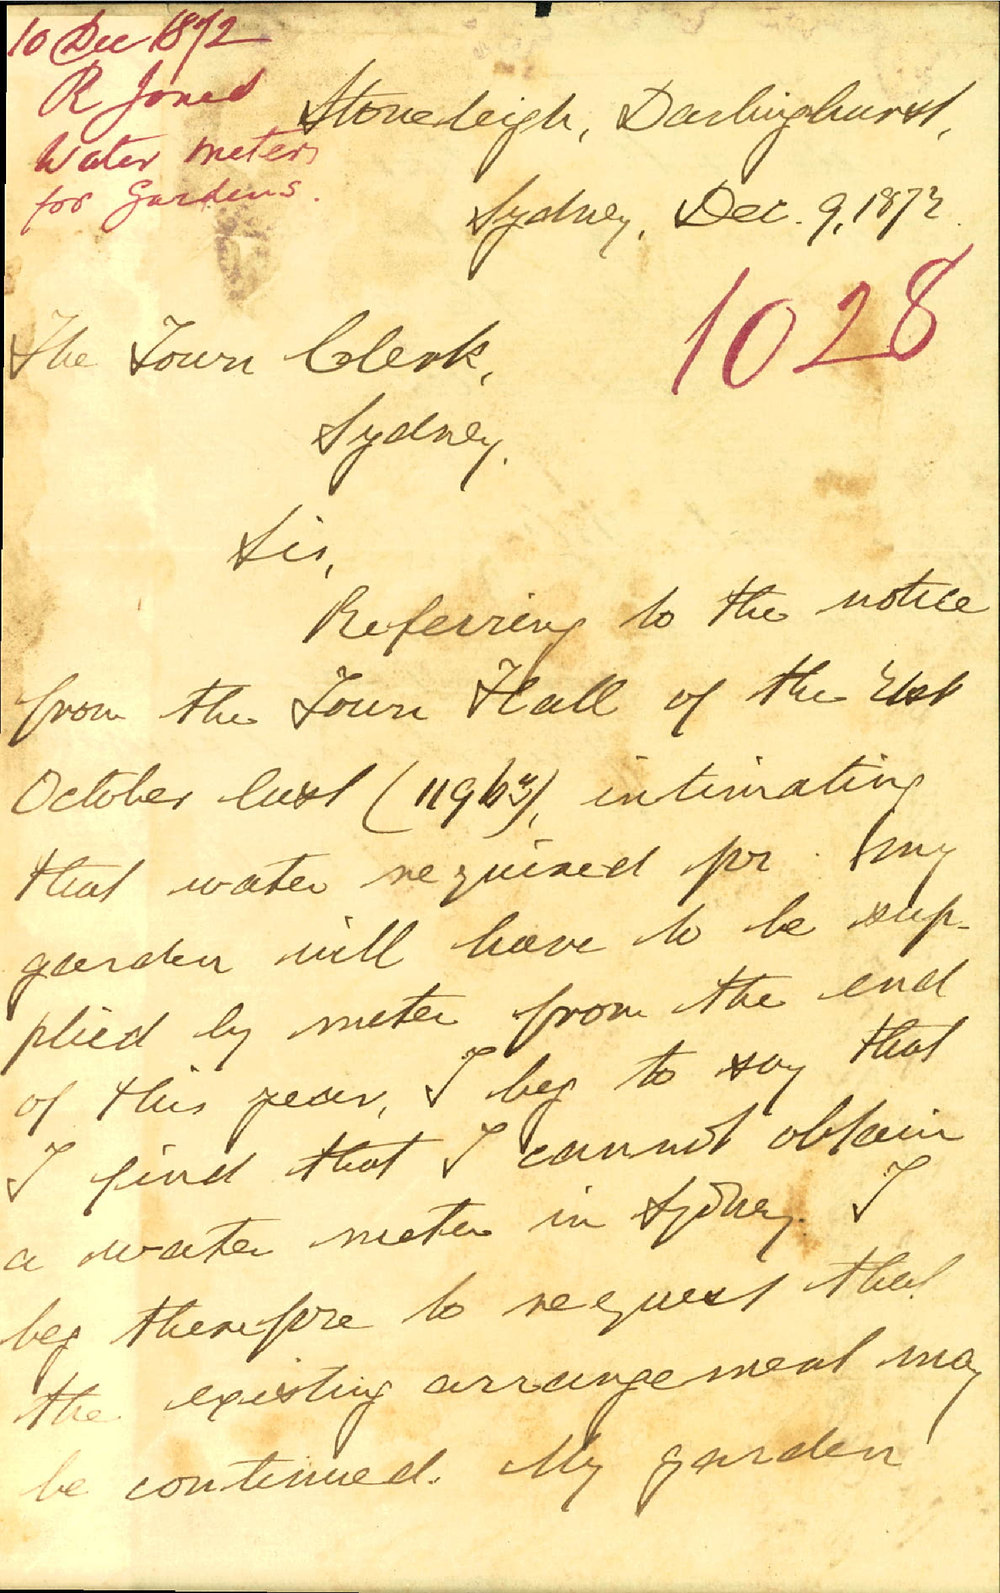 10 Dec 1872
R Jones
Water meters
for Gardens.
Stoneleigh, Darlinghurst,
Sydney, Dec. 9, 1872
1028
The Town Clerk,
Sydney.
Sir,
Referring to the notice
from the Town Hall of the 21st
October last (11963), intimating
that water required for my
garden will have to be sup-
plied by meter from the end
of this year, I beg to say that
I find that I cannot obtain
a water meter in Sydney. I
beg therefore to request that
the existing arrangement may
be continued. My garden